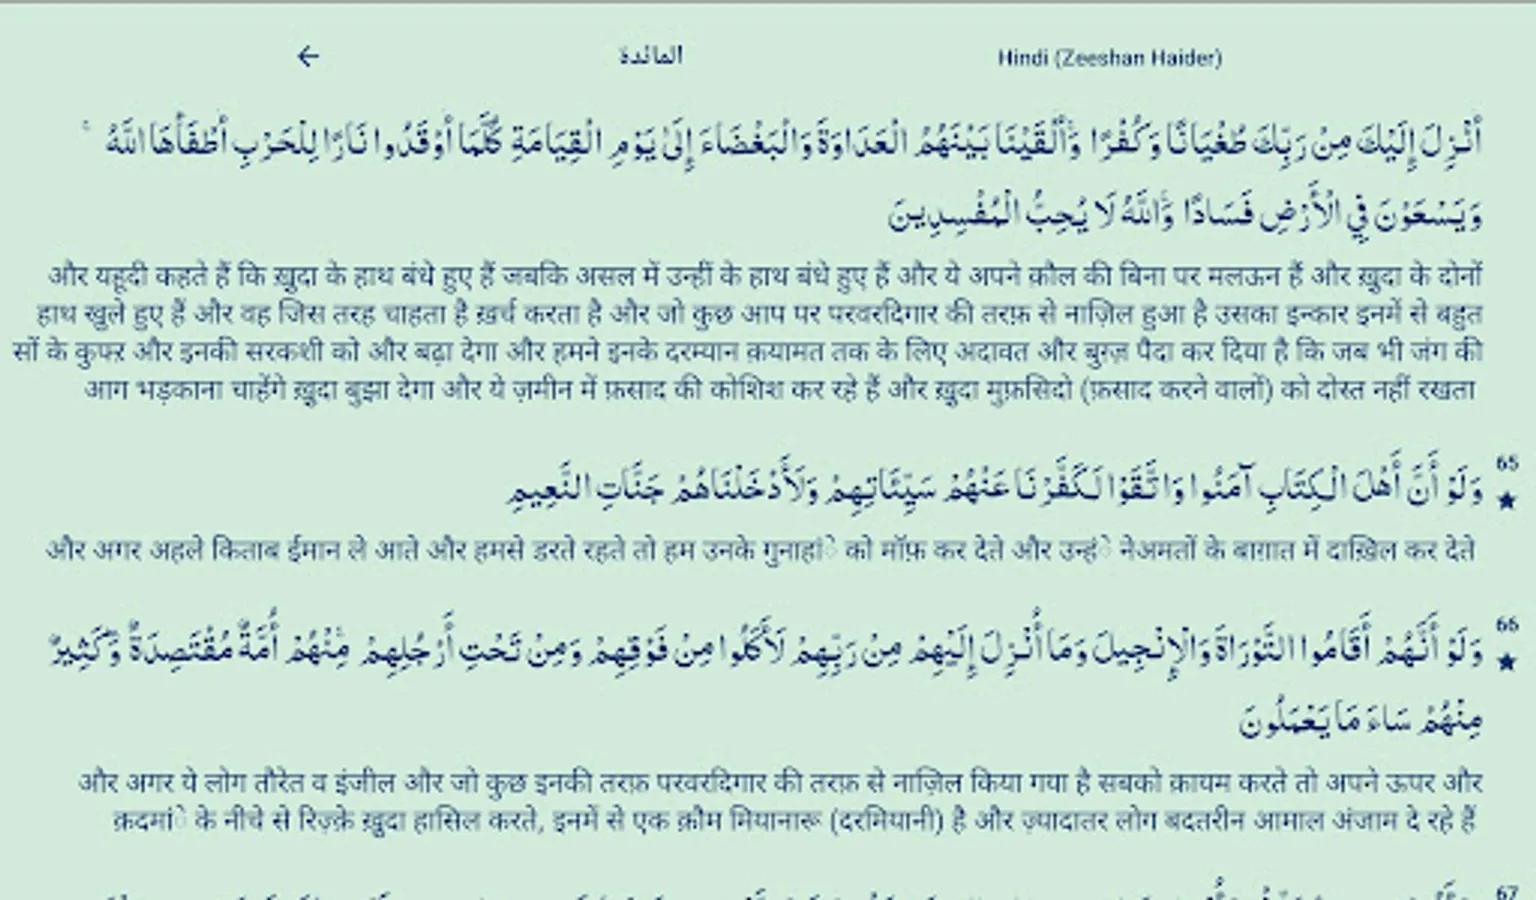 ← المائدة Hindi (Zeeshan Haider)
أُنْزِلَ إِلَيْكَ مِنْ رَبِّكَ طُغْيَانًا وَكُفْرًا ۚ وَأَلْقَيْنَا بَيْنَهُمُ الْعَدَاوَةَ وَالْبَغْضَاءَ إِلَىٰ يَوْمِ الْقِيَامَةِ ۚ كُلَّمَا أَوْقَدُوا نَارًا لِلْحَرْبِ أَطْفَأَهَا اللَّهُ ۚ
وَيَسْعَوْنَ فِي الْأَرْضِ فَسَادًا ۚ وَاللَّهُ لَا يُحِبُّ الْمُفْسِدِينَ
और यहूदी कहते हैं कि ख़ुदा के हाथ बंधे हुए हैं जबकि असल में उन्हीं के हाथ बंधे हुए हैं और ये अपने क़ौल की बिना पर मलऊन हैं और ख़ुदा के दोनों
हाथ खुले हुए हैं और वह जिस तरह चाहता है ख़र्च करता है और जो कुछ आप पर परवरदिगार की तरफ़ से नाज़िल हुआ है उसका इन्कार इनमें से बहुत
सों के कुफ्ऱ और इनकी सरकशी को और बढ़ा देगा और हमने इनके दरम्यान क़यामत तक के लिए अदावत और बुग़्ज़ पैदा कर दिया है कि जब भी जंग की
आग भड़काना चाहेंगे ख़ुदा बुझा देगा और ये ज़मीन में फ़साद की कोशिश कर रहे हैं और ख़ुदा मुफ़सिदो (फ़साद करने वालों) को दोस्त नहीं रखता
65 ★ وَلَوْ أَنَّ أَهْلَ الْكِتَابِ آمَنُوا وَاتَّقَوْا لَكَفَّرْنَا عَنْهُمْ سَيِّئَاتِهِمْ وَلَأَدْخَلْنَاهُمْ جَنَّاتِ النَّعِيمِ
और अगर अहले किताब ईमान ले आते और हमसे डरते रहते तो हम उनके गुनाहांे को मॉफ़ कर देते और उन्हंे नेअमतों के बाग़ात में दाख़िल कर देते
66 ★ وَلَوْ أَنَّهُمْ أَقَامُوا التَّوْرَاةَ وَالْإِنْجِيلَ وَمَا أُنْزِلَ إِلَيْهِمْ مِنْ رَبِّهِمْ لَأَكَلُوا مِنْ فَوْقِهِمْ وَمِنْ تَحْتِ أَرْجُلِهِمْ ۚ مِنْهُمْ أُمَّةٌ مُقْتَصِدَةٌ ۖ وَكَثِيرٌ
مِنْهُمْ سَاءَ مَا يَعْمَلُونَ
और अगर ये लोग तौरेत व इंजील और जो कुछ इनकी तरफ़ परवरदिगार की तरफ़ से नाज़िल किया गया है सबको क़ायम करते तो अपने ऊपर और
क़दमांे के नीचे से रिज़्क़े ख़ुदा हासिल करते, इनमें से एक क़ौम मियानारू (दरमियानी) है और ज़्यादातर लोग बदतरीन आमाल अंजाम दे रहे हैं
67